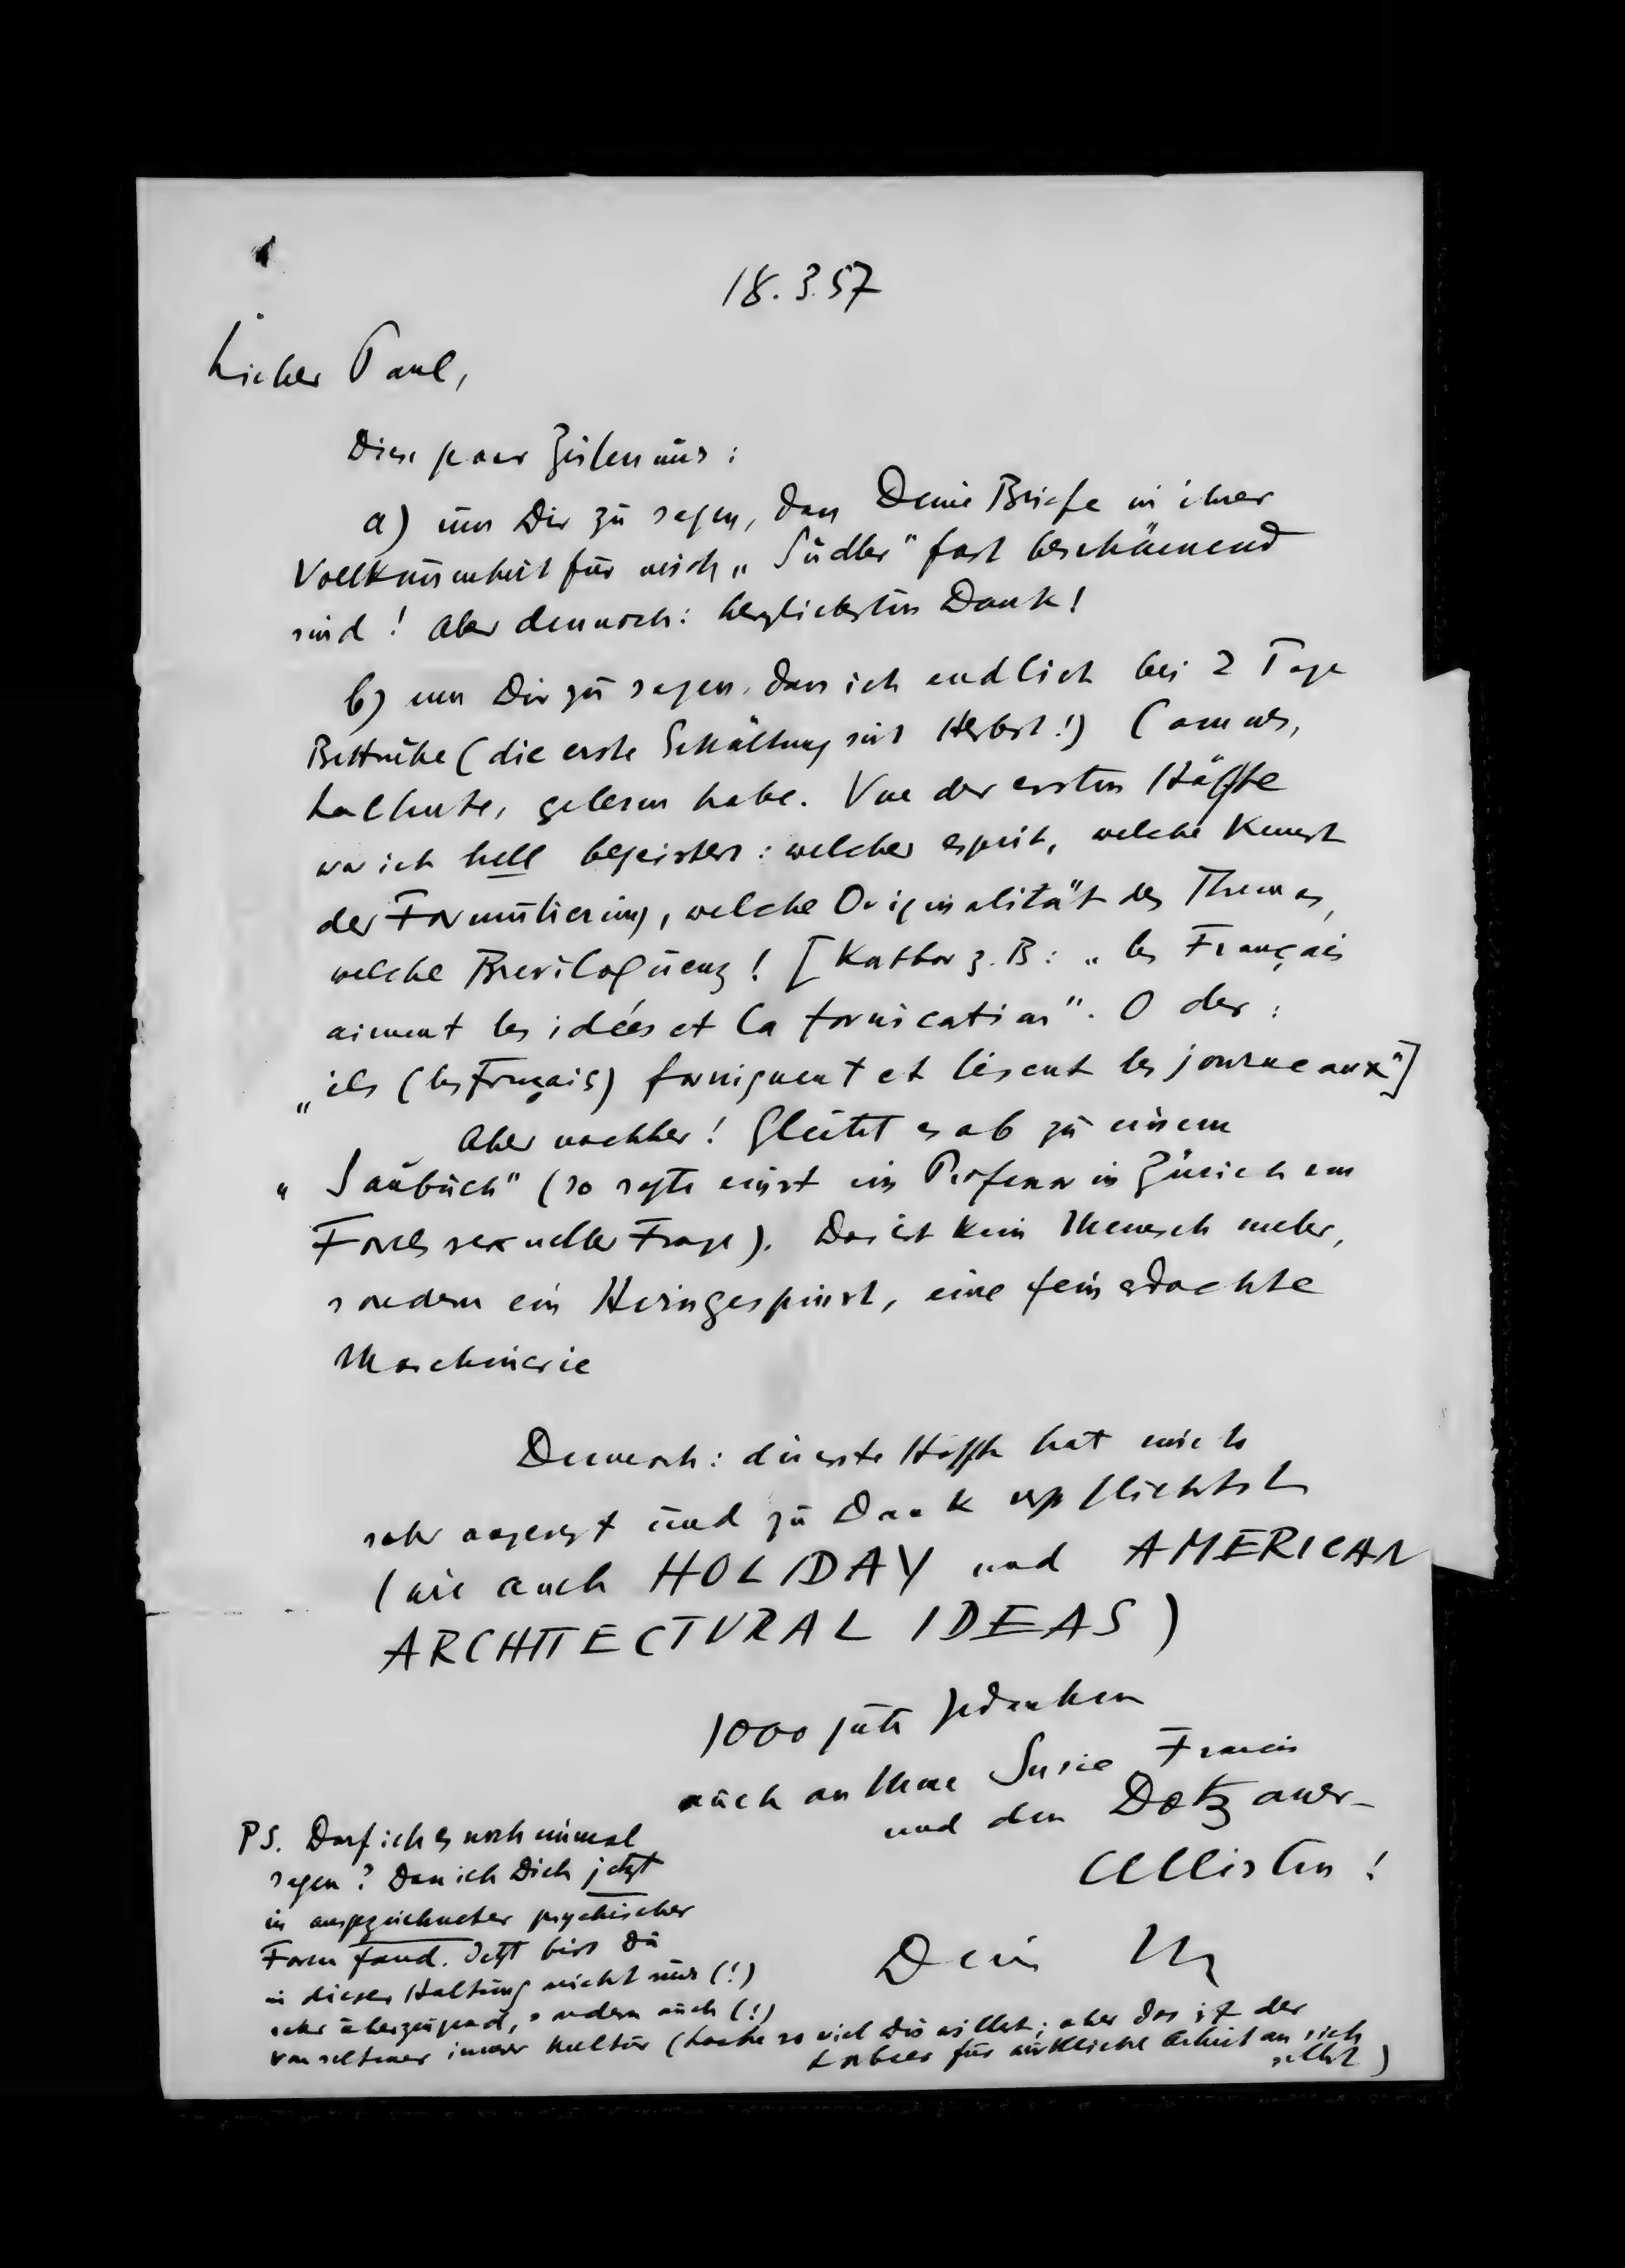 18.3.57
Lieber Paul,
Diese paar Zeilen nur:
a) um Dir zu sagen, dass Deine Briefe in ihrer
Vollkommenheit für mich „Sudler" fast beschämend
sind! Aber dennoch: herzlichsten Dank!
b) um Dir zu sagen, dass ich endlich bei 2 Tage
Bettruhe (die erste Erkältung seit Herbst!) Camus,
La Chute, gelesen habe. Von der ersten Hälfte
war ich hell begeistert: welcher esprit, welche Kunst
der Formulierung, welche Originalität des Themas,
welche Breviloquenz! [Kostbar z.B: „les Français
aiment les idées et la fornication". Oder:
„ils (les Français) forniquent et lisent les journeaux"]
Aber nachher! Gleitet es ab zu einem
„Saubuch" (so sagte einst ein Professor in Zürich von
Forels sexueller Frage). Das ist kein Mensch mehr,
sondern ein Hirngespinst, eine fein erdachte
Maschinerie
Dennoch: die erste Hälfte hat mich
sehr angeregt und zu Dank verpflichtet
(wie auch HOLIDAY und AMERICAN
ARCHITECTURAL IDEAS)
1000 gute Gedanken
auch an Susie Francis
und den Dotzauer-
Cellisten!
Dein
PS. Darf ich es noch einmal
sagen? Dass ich Dich jetzt
in ausgezeichneter psychischer
Form fand. Jetzt bist Du
in dieser Haltung nicht nur (!)
sehr überzeugend, sondern auch (!)
von seltener innerer Kultur (Lache so viel Du willst; aber das ist der
Lorbeer für wirkliche Arbeit an sich
selbst)